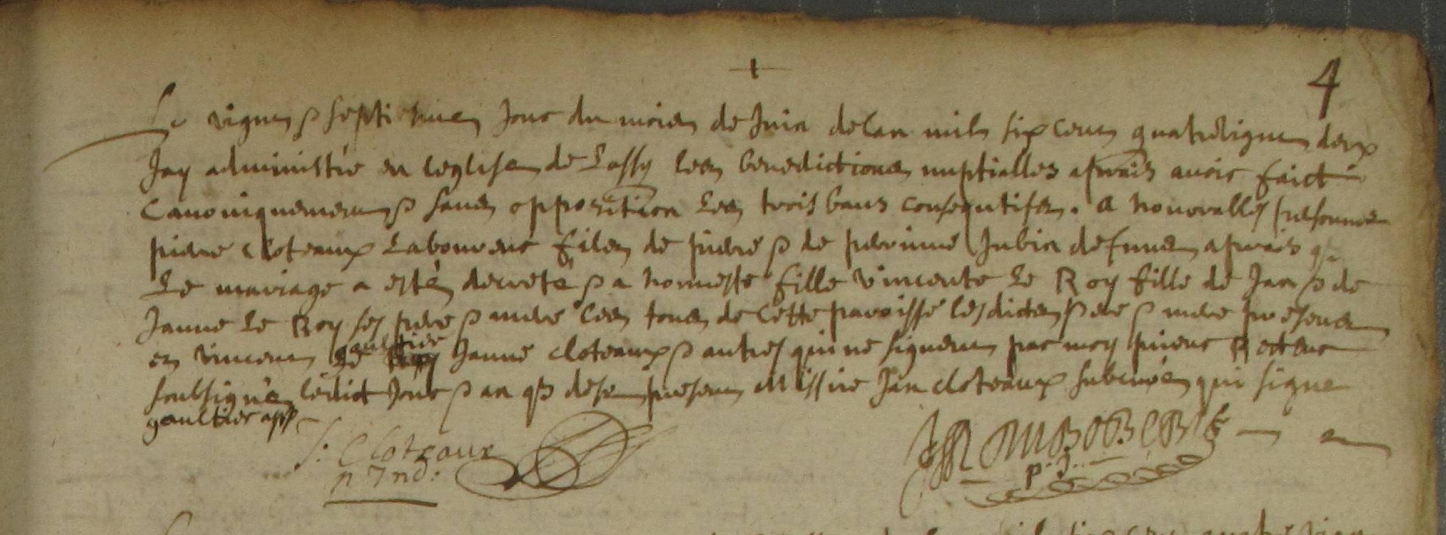 4
Le vignt & septiesme jour du mois de Juin de lan mil six cent quatrevignt deux
Jay administré en leglise de Lassy les benedictions nuptialles apprais avoir faict
Canoniquement & sans opposition les trois bans consequtifs. a honorables personnes
pierre Cloteaux Laboureur fils de pierre & de perrinne Jubin defuncts apprais que
Le mariage a esté decreté & a honneste fille vincente Le Roy fille de Jan & de
Janne Le Roy ses pere & mere les tous de cette paroisse lesdicts pere & mere presents
et vincent gaultier Janne cloteaux & autres qui ne signent par moy Recteur
soubsigné ledict jour & an que dessus present Missire Jan cloteaux qui signe
gaultier app
J: Cloteaux
p. Ind: